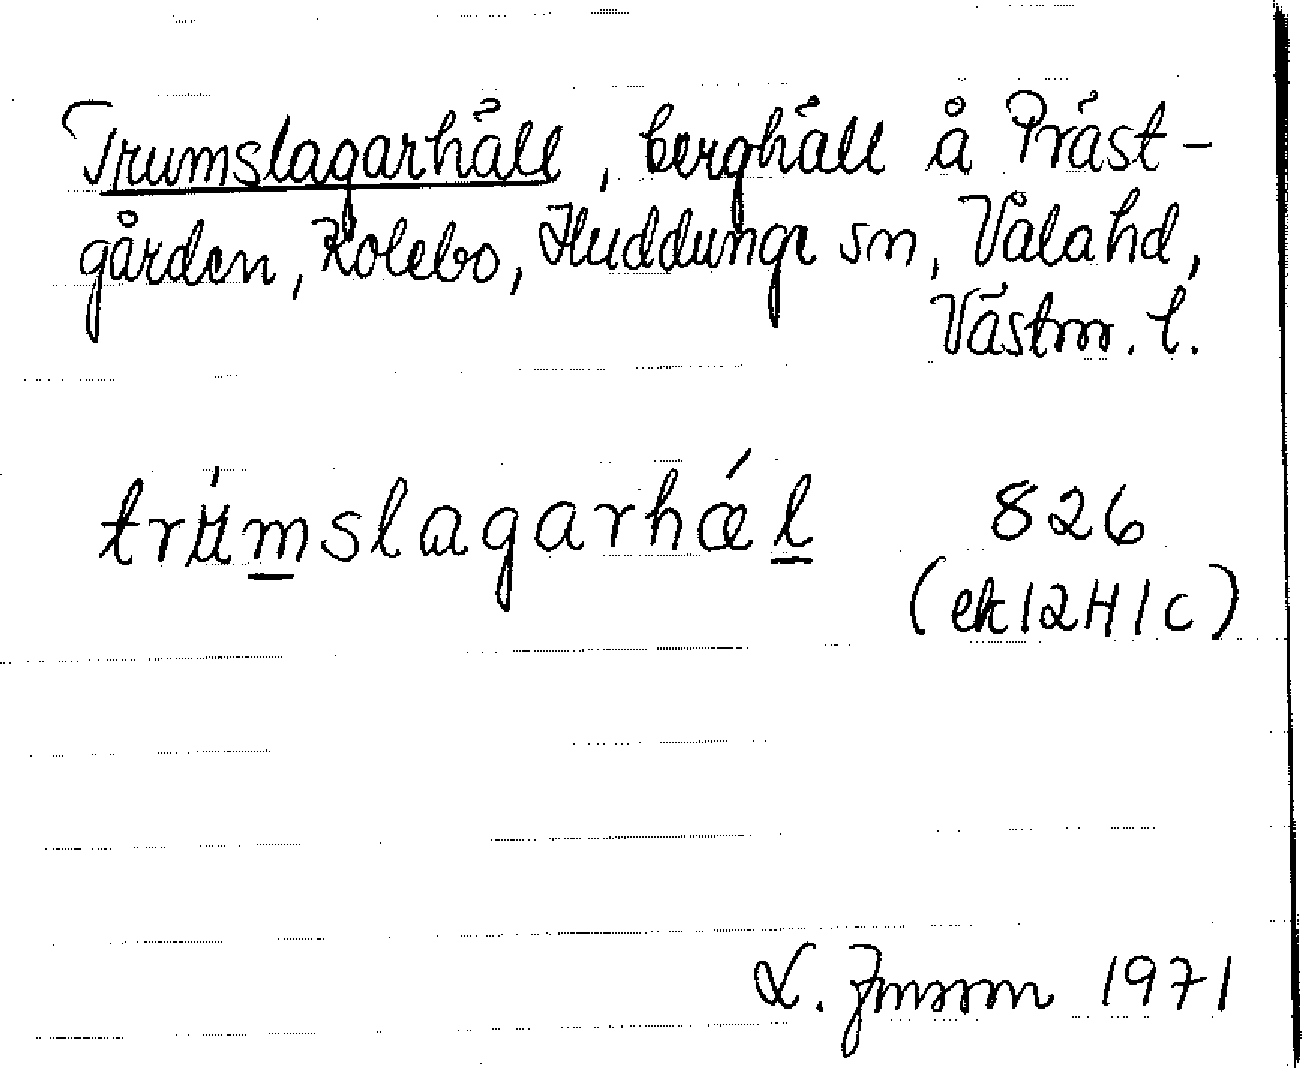 Trumslagarhäll, berghäll å Präst-
gården, Kolebo, Huddunge sn, Våla hd,
Västm. l.
trumslagarhæl 826
(ek 12H1c)
L. 1971